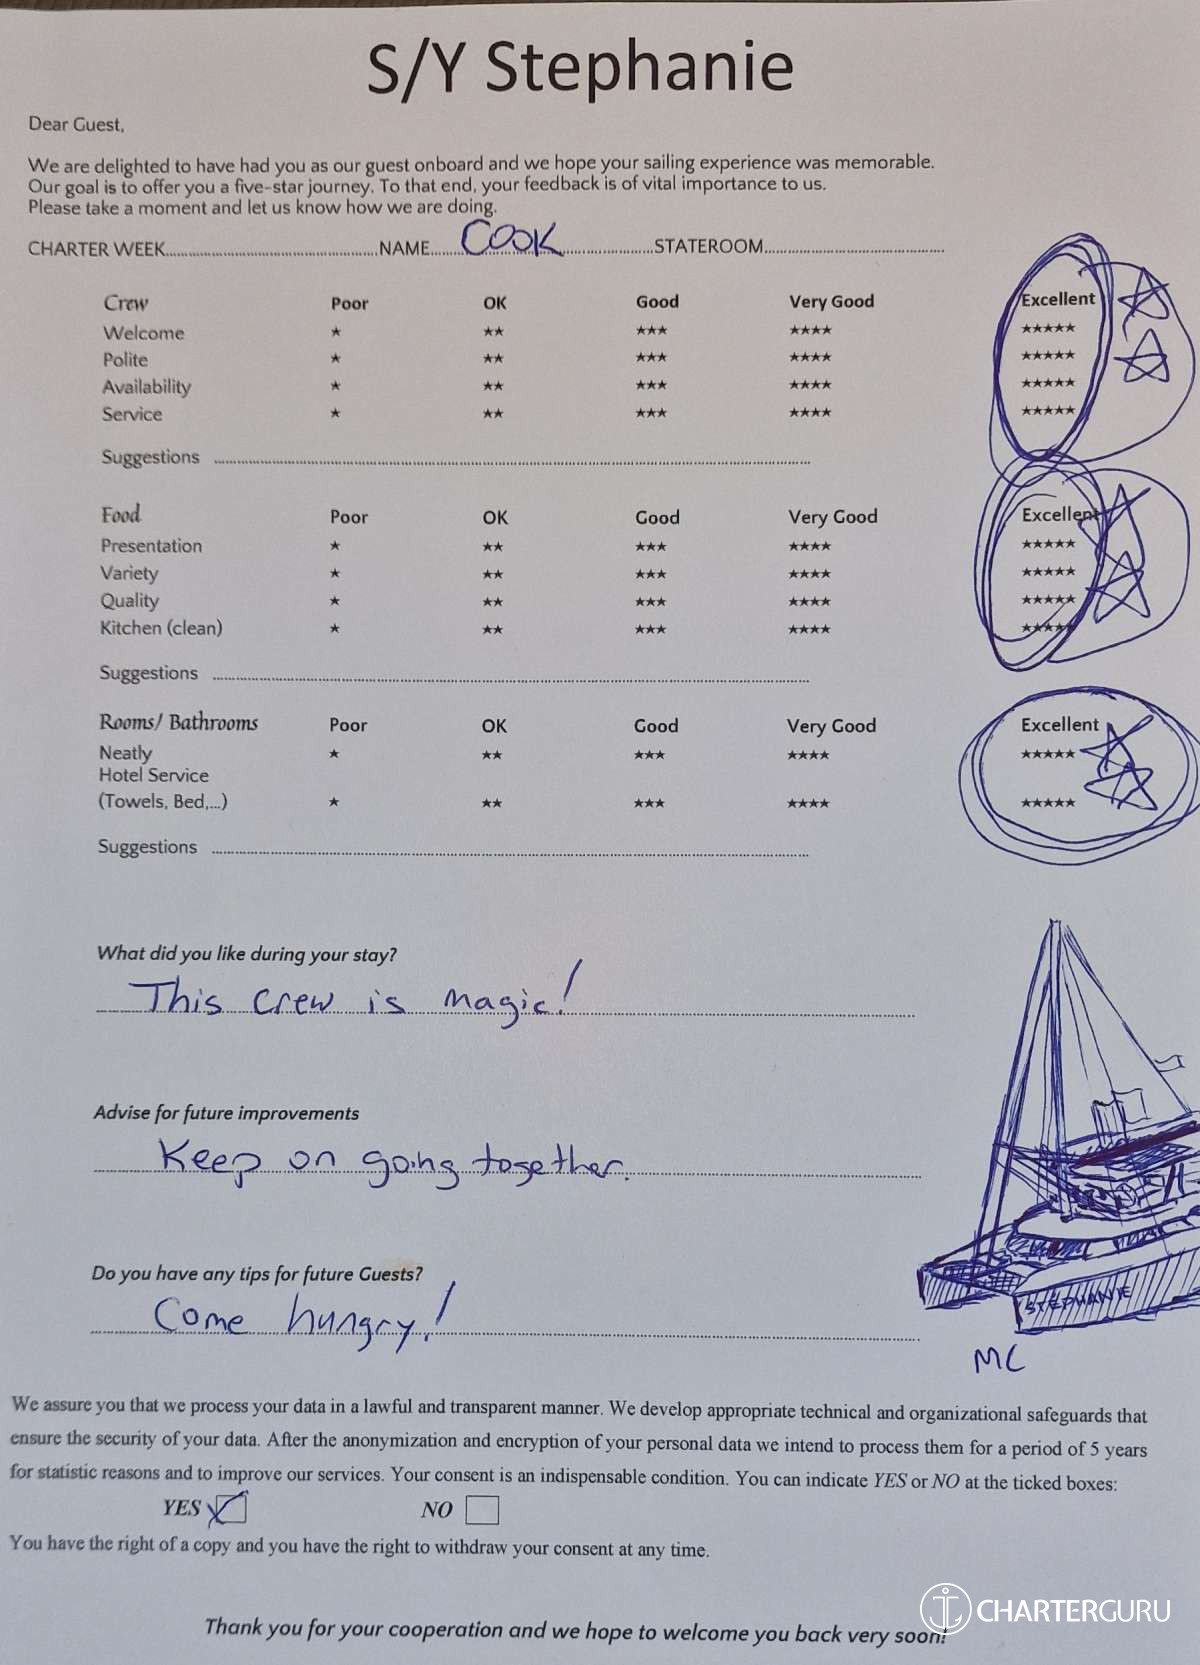 S/Y Stephanie
Dear Guest,
We are delighted to have had you as our guest onboard and we hope your sailing experience was memorable.
Our goal is to offer you a five-star journey. To that end, your feedback is of vital importance to us.
Please take a moment and let us know how we are doing.
CHARTER WEEK..........NAME.....COOK..........STATEROOM..........
Crew Poor OK Good Very Good Excellent
Welcome ★ ★★ ★★★ ★★★★ ★★★★★
Polite ★ ★★ ★★★ ★★★★ ★★★★★
Availability ★ ★★ ★★★ ★★★★ ★★★★★
Service ★ ★★ ★★★ ★★★★ ★★★★★
Suggestions
Food Poor OK Good Very Good Excellent
Presentation ★ ★★ ★★★ ★★★★ ★★★★★
Variety ★ ★★ ★★★ ★★★★ ★★★★★
Quality ★ ★★ ★★★ ★★★★ ★★★★★
Kitchen (clean) ★ ★★ ★★★ ★★★★ ★★★★★
Suggestions
Rooms/ Bathrooms Poor OK Good Very Good Excellent
Neatly ★ ★★ ★★★ ★★★★ ★★★★★
Hotel Service
(Towels, Bed,...) ★ ★★ ★★★ ★★★★ ★★★★★
Suggestions
What did you like during your stay?
This crew is magic!
Advise for future improvements
Keep on going together.
Do you have any tips for future Guests?
Come hungry!
STEPHANIE
MC
We assure you that we process your data in a lawful and transparent manner. We develop appropriate technical and organizational safeguards that
ensure the security of your data. After the anonymization and encryption of your personal data we intend to process them for a period of 5 years
for statistic reasons and to improve our services. Your consent is an indispensable condition. You can indicate YES or NO at the ticked boxes:
YES NO
You have the right of a copy and you have the right to withdraw your consent at any time.
CHARTERGURU
Thank you for your cooperation and we hope to welcome you back very soon!